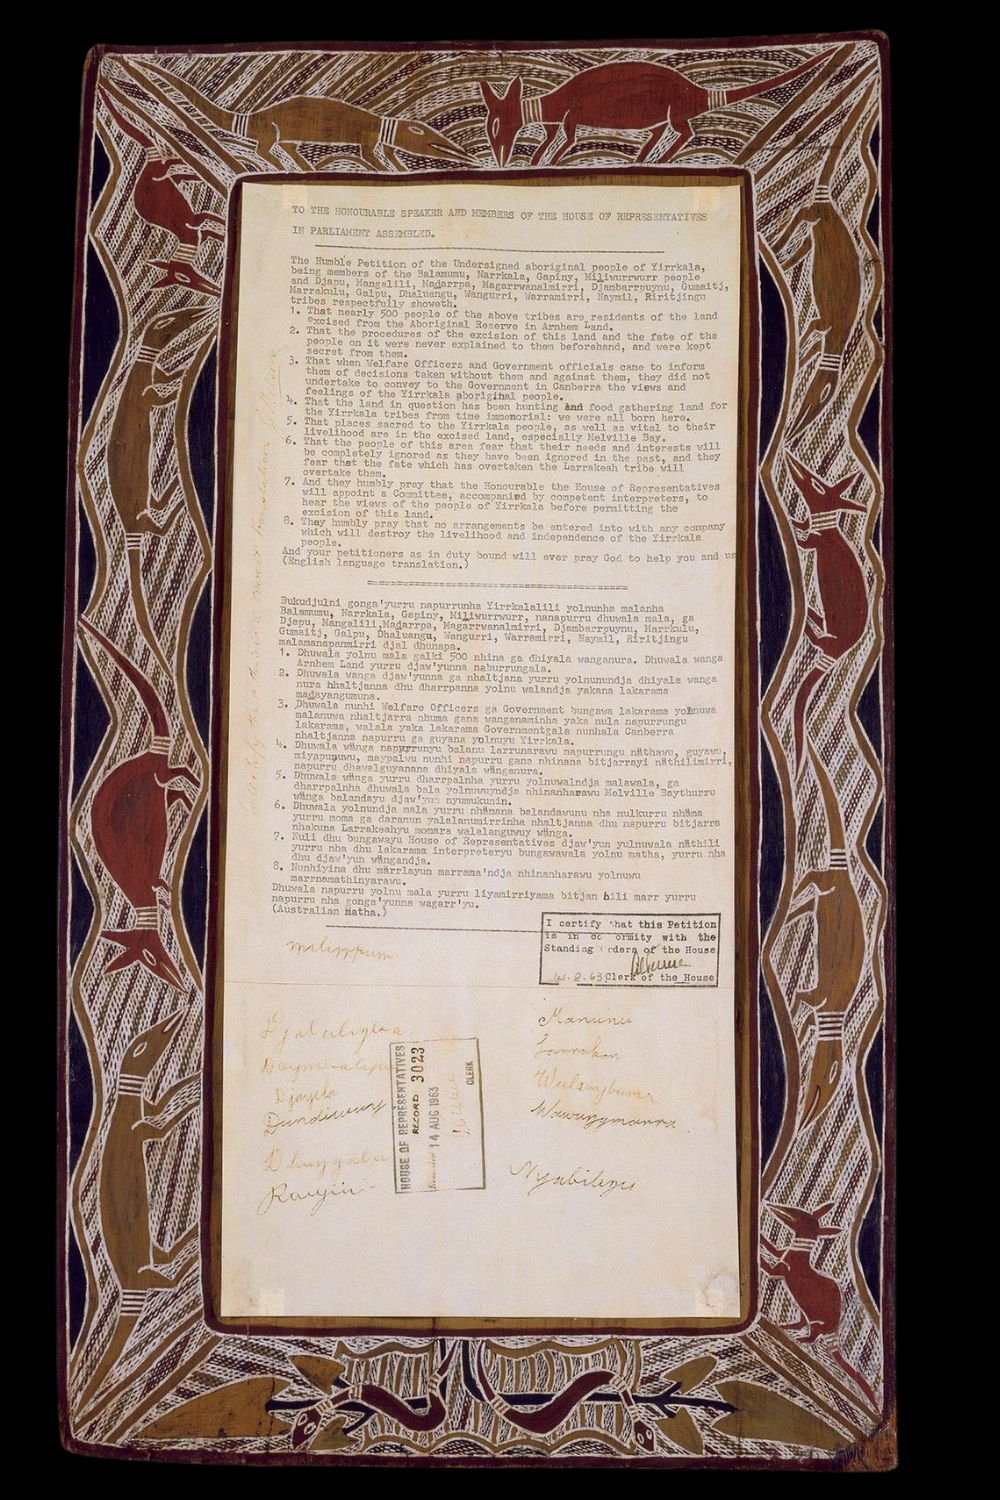 TO THE HONOURABLE SPEAKER AND MEMBERS OF THE HOUSE OF REPRESENTATIVES
IN PARLIAMENT ASSEMBLED.
The Humble Petition of the Undersigned aboriginal people of Yirrkala,
being members of the Balamumu, Narrkala, Gapiny, Miliwurrwurr people
and Djapu, Mangalili, Madarrpa, Magarrwanalmirri, Djambarrpuynu, Gumaitj,
Marrakulu, Galpu, Dhaluangu, Wangurri, Warramirri, Naymil, Riritjingu
tribes respectfully showeth.
1. That nearly 500 people of the above tribes are residents of the land
excised from the Aboriginal Reserve in Arnhem Land.
2. That the procedures of the excision of this land and the fate of the
people on it were never explained to them beforehand, and were kept
secret from them.
3. That when Welfare Officers and Government officials came to inform
them of decisions taken without them and against them, they did not
undertake to convey to the Government in Canberra the views and
feelings of the Yirrkala aboriginal people.
4. That the land in question has been hunting and food gathering land for
the Yirrkala tribes from time immemorial: we were all born here.
5. That places sacred to the Yirrkala people, as well as vital to their
livelihood are in the excised land, especially Melville Bay.
6. That the people of this area fear that their needs and interests will
be completely ignored as they have been ignored in the past, and they
fear that the fate which has overtaken the Larrakeah tribe will
overtake them.
7. And they humbly pray that the Honourable the House of Representatives
will appoint a Committee, accompanied by competent interpreters, to
hear the views of the people of Yirrkala before permitting the
excision of this land.
8. They humbly pray that no arrangements be entered into with any company
which will destroy the livelihood and independence of the Yirrkala
people.
And your petitioners as in duty bound will ever pray God to help you and us
(English language translation.)
Bukudjulni gonga'yurru napurrunha Yirrkalalili yolnunha malanha
Balamumu, Narrkala, Gapiny, Miliwurrwurr, nanapurru dhuwala mala, ga
Djapu, Mangalili, Madarrpa, Magarrwanalmirri, Djambarrpuynu, Marrkulu,
Gumaitj, Galpu, Dhaluangu, Wangurri, Warramirri, Naymil, Riritjingu
malamanapanmirri djal dhunapa.
1. Dhuwala yolnu mala galki 500 nhina ga dhiyala wanganura. Dhuwala wanga
Arnhem Land yurru djaw'yunna naburrungala.
2. Dhuwala wanga djaw'yunna ga nhaltjana yurru yolnunundja dhiyala wanga
nura nhaltjanna dhu dharrpanna yolnu walandja yakana lakarama
madayangumuna.
3. Dhuwala nunhi Welfare Officers ga Government bungawa lakarama yolnuwa
malanuwa nhaltjarra nhuma gana wanganaminha yaka nula napurrungu
lakarama, walala yaka lakarama Governmentgala nunhala Canberra
nhaltjanna napurru ga guyana yolnuyu Yirrkala.
4. Dhuwala wänga napurrunyu balanu larrunarawu napurrungu näthawu, guyawu,
miyapunuwu, maypalwu nunhi napurru gana nhinana bitjarrayi näthilimirri,
napurru dhawalguyanana dhiyala wänganura.
5. Dhuwala wänga yurru dharrpalnha yurru yolnuwalndja malawala, ga
dharrpalnha dhuwala bala yolnuwuyndja nhinanharawu Melville Baythurru
wänga balandayu djaw'yun nyumukunin.
6. Dhuwala yolnundja mala yurru nhämana balandawunu nha mulkurru nhäma
yurru moma ga daranun yalalanumirrinha nhaltjanna dhu napurru bitjarra
nhakuna Larrakeahyu momara walalanguwuy wänga.
7. Nuli dhu bungawayu House of Representatives djaw'yun yulnuwala näthili
yurru nha dhu lakarama interpreteryu bungawawala yolnu matha, yurru nha
dhu djaw'yun wängandja.
8. Nunhiyina dhu märrlayun marrama'ndja nhinanharawu yolnuwu
marrnamathinyarawu.
Dhuwala napurru yolnu mala yurru liyamirriyama bitjan bili marr yurru
napurru nha gonga'yunna wagarr'yu.
(Australian Matha.)
I certify that this Petition
is in conformity with the
Standing Orders of the House
14.8.63 Clerk of the House
milirrpum
Manunu
Larrakan
Wulanybuma
Wawunymarra
Nyabilinyu
Djalalingba
Daymbalipu
Djayila
Dundiwuy
Dhuygala
Raiyini
HOUSE OF REPRESENTATIVES
RECORD 3023
14 AUG 1963
CLERK